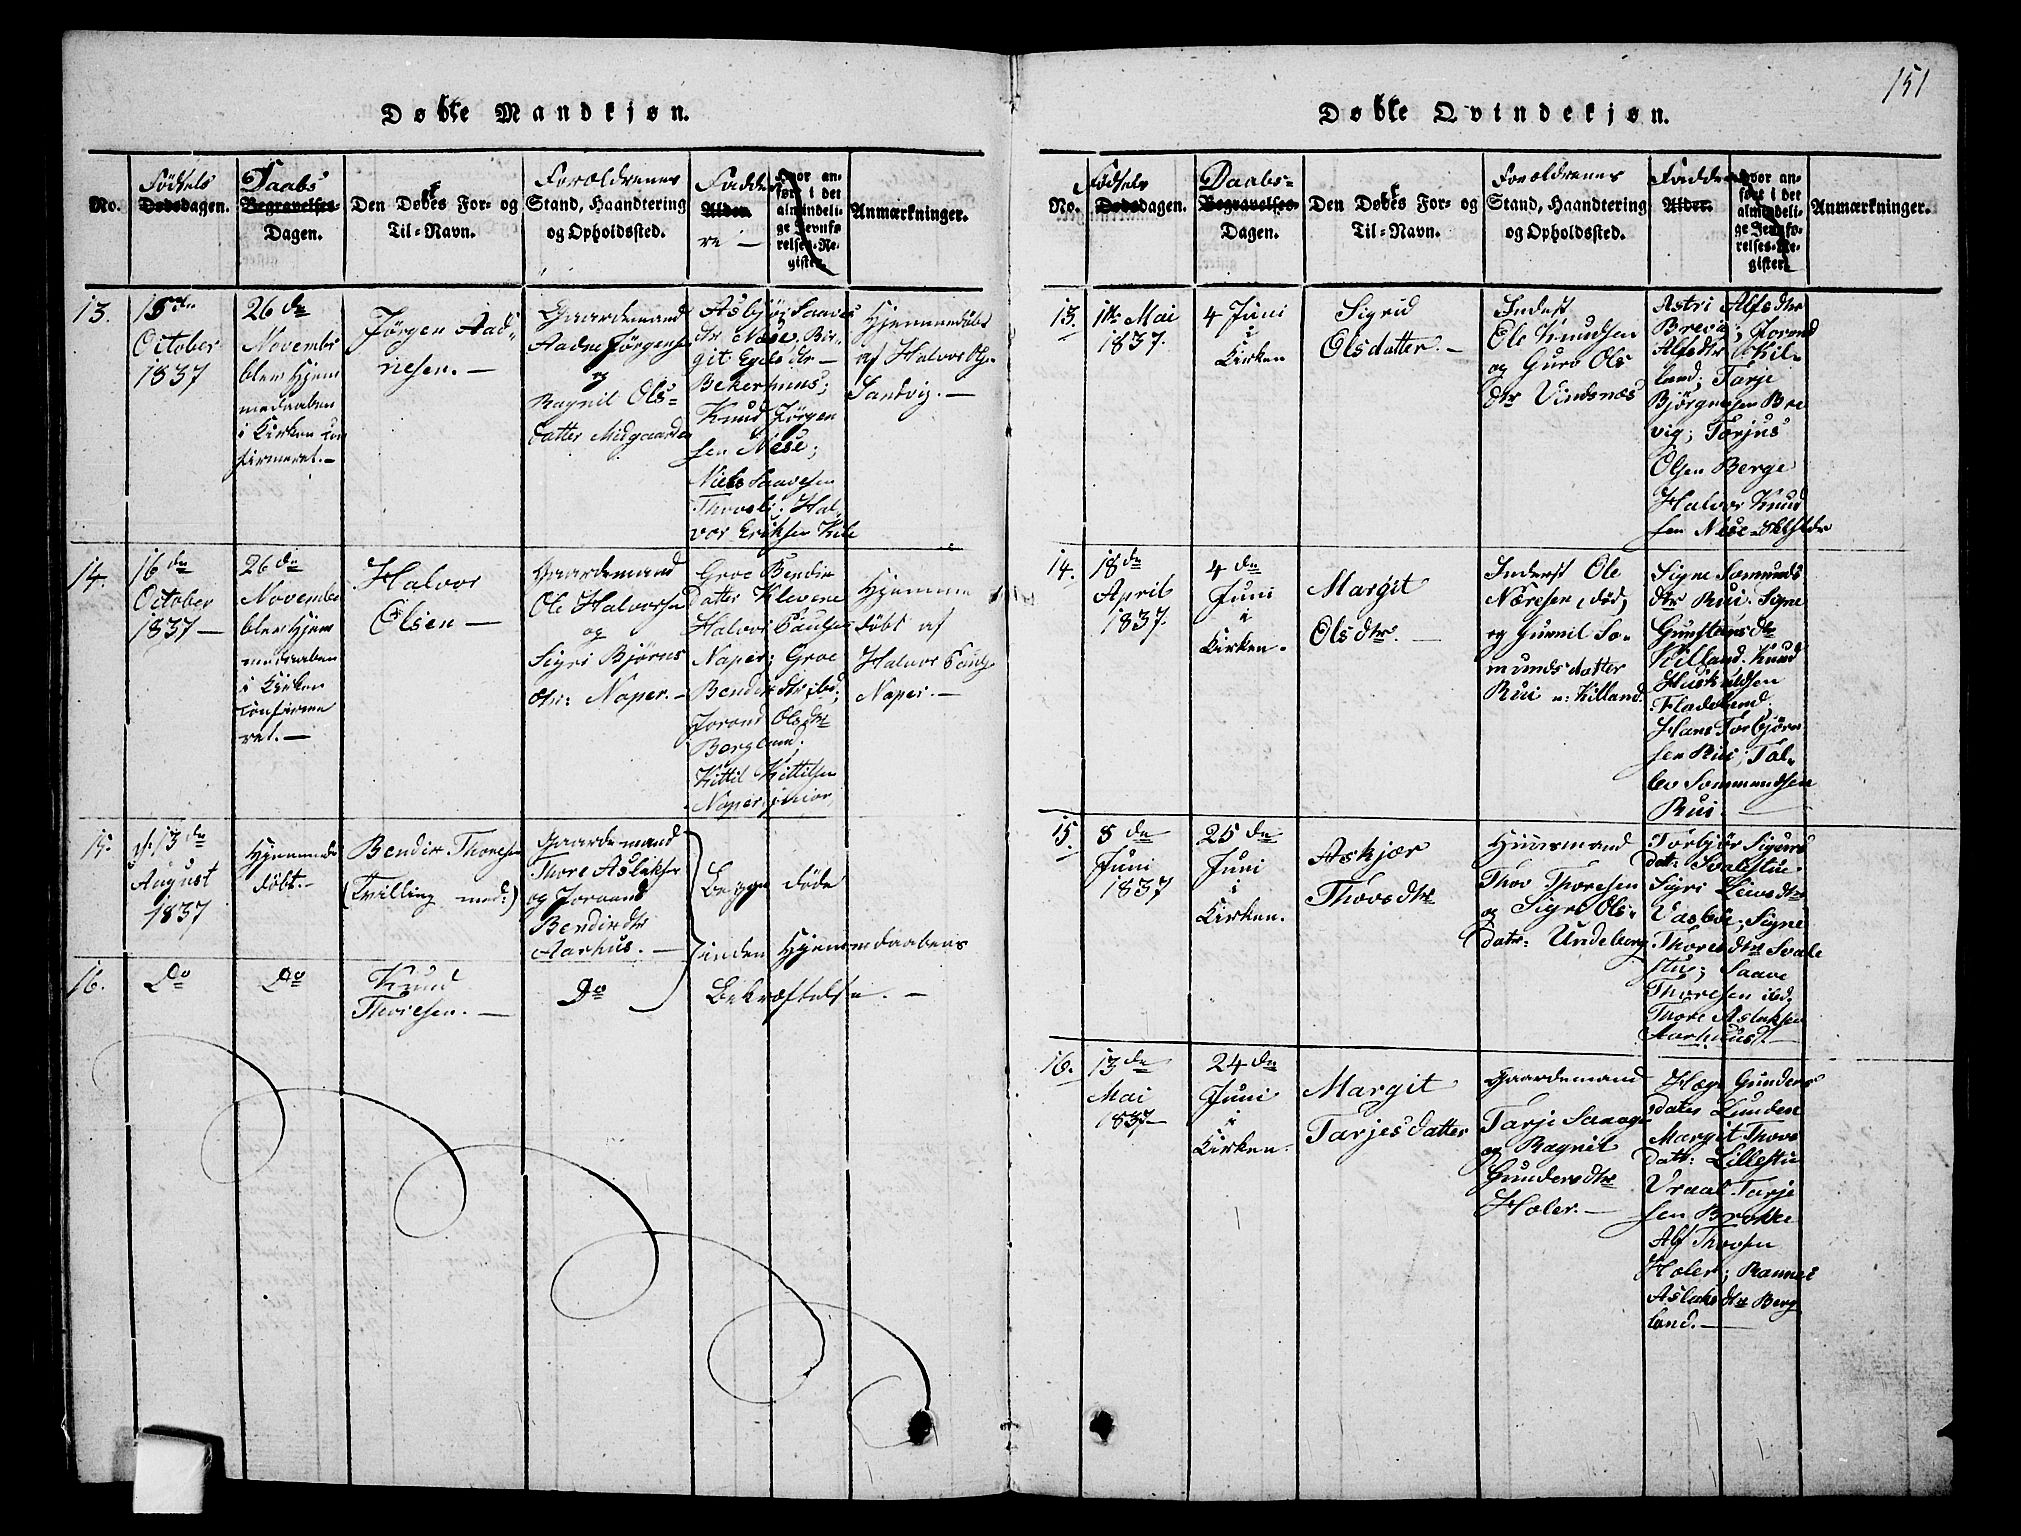 151
Døbte Mandkjøn.
No.
Fødsels
Dødsdagen.
Daabs
Begravelses-
Dagen.
Den Døbtes For- og
Til-Navn.
Forældrenes
Stand, Haandtering
og Opholdssted.
Fadde
Alder.
re —
Hvor an-
ført i det
almindeli-
ge Jevnfø-
relses-Re-
gister.
Anmærkninger.
13.
October
1837
26de
Novembr
blev Hjem
medaaben
i Kirken con
firmeret. —
Jørgen Aad-
nesen. —
Gaardemand
Aadne Jørgensen
og
Ragnil Ols-
datter Midgaarden
Asbjør Saaves
dtr Næse, Bir-
git Egilsdtr —
Bekerhuus;
Knud Jørgen
sen Nese;
Niels Saavesen
Hal-
vor Eriksen Kile
Hjemmedøbt
af Halvor Ols.
Sandvig. —
14.
16de
October
1837 —
26de
Novembe
blev Hjem
medaaben
i Kirken
confirme
ret. —
Halvor
Olsen —
Gaardemand
Ole Halvorsen
og
Sigri Bjørns
dtr: Naper. —
Groe Bendix
datter Klevene
Halvor Paulsen
Naper; Groe
Bendixdtr ibd;
Jorand Olsdtr
Bergland;
Kittil Kittilsen
Naper junior,
Hjemme
døbt af
Halvor Pauls.
Naper. —
15.
13de
August
1837
Hjemme
døbt. —
Bendix Thoresen
(Tvilling med)
Gaardemand
Thore Aslaksen
og Joraand
Bendixdtr
Aarhus. —
Begge døde
inden Hjemmedaabens
Bekræftelse. —
16.
Do
Do
Knud
Thoresen. —
Do
Døbte Qvindekjøn.
No.
Fødsels
Dødsdagen.
Daabs-
Begravelses-
Dagen.
Den Døbtes For- og
Til-Navn.
Forældrenes
Stand, Haandtering
og Opholdssted.
Faddere
Alder.
Hvor an-
ført i det
almindeli-
ge Jevnfø-
relses-Re-
gister.
Anmærkninger.
13.
Mai
1837.
4 Juni
i
Kirken
Sigrid
Olsdatter. —
Inderst
Ole Knudsen
og Guro Ols
dtr Vindsnæs
Astri Alfsdtr
Brevig; Jorend
Alfsdtr Kil-
land; Tarje
Bjørgnesen Bre
vig; Torjus
Olsen Berge
Halvor Knud
sen Nese
14.
18de
April
1837.
4de
Juni
i
Kirken. —
Margit
Olsdtr. —
Inderst Ole
Næresen, død,
og Gunnil So-
mundsdatter
Rui n: Killand.
Signe Somunds
dtr Rui. Signe
Gunstensdtr
Killand. Knud
Huskuldsen
Fladeland.
Hans Torbjørn
sen Rui; Tal-
lev Sommundsen
Rui —
15.
8de
Juni
1837
25de
Juni
i
Kirken.
Askjær
Thovsdtr
Huusmand
Thov Thoresen
og Signe Ols-
datr: Undeberg
Torbjør Sigurs
datr: Svalestue
Sigri Leivsdtr
Vasbøe; Signe
Thoresdtr Svale
stue; Saave
Thoresen ibd,
Thore Aslaksen
Aarhuus —
16.
13de
Mai
1837 —
24de
Juni
i
Kirken.
Margit
Tarjesdatter
Gaardemand
Tarje
og Ragnil
Gundersdtr
Holer. —
Hæge Gunders
datr Lunden
Margit Thovs
datr: Lillestue
Vraal Tarje
sen Brokke
Alf Thovsen
Holer; Rannei
Aslaksdtr Berg
land. —